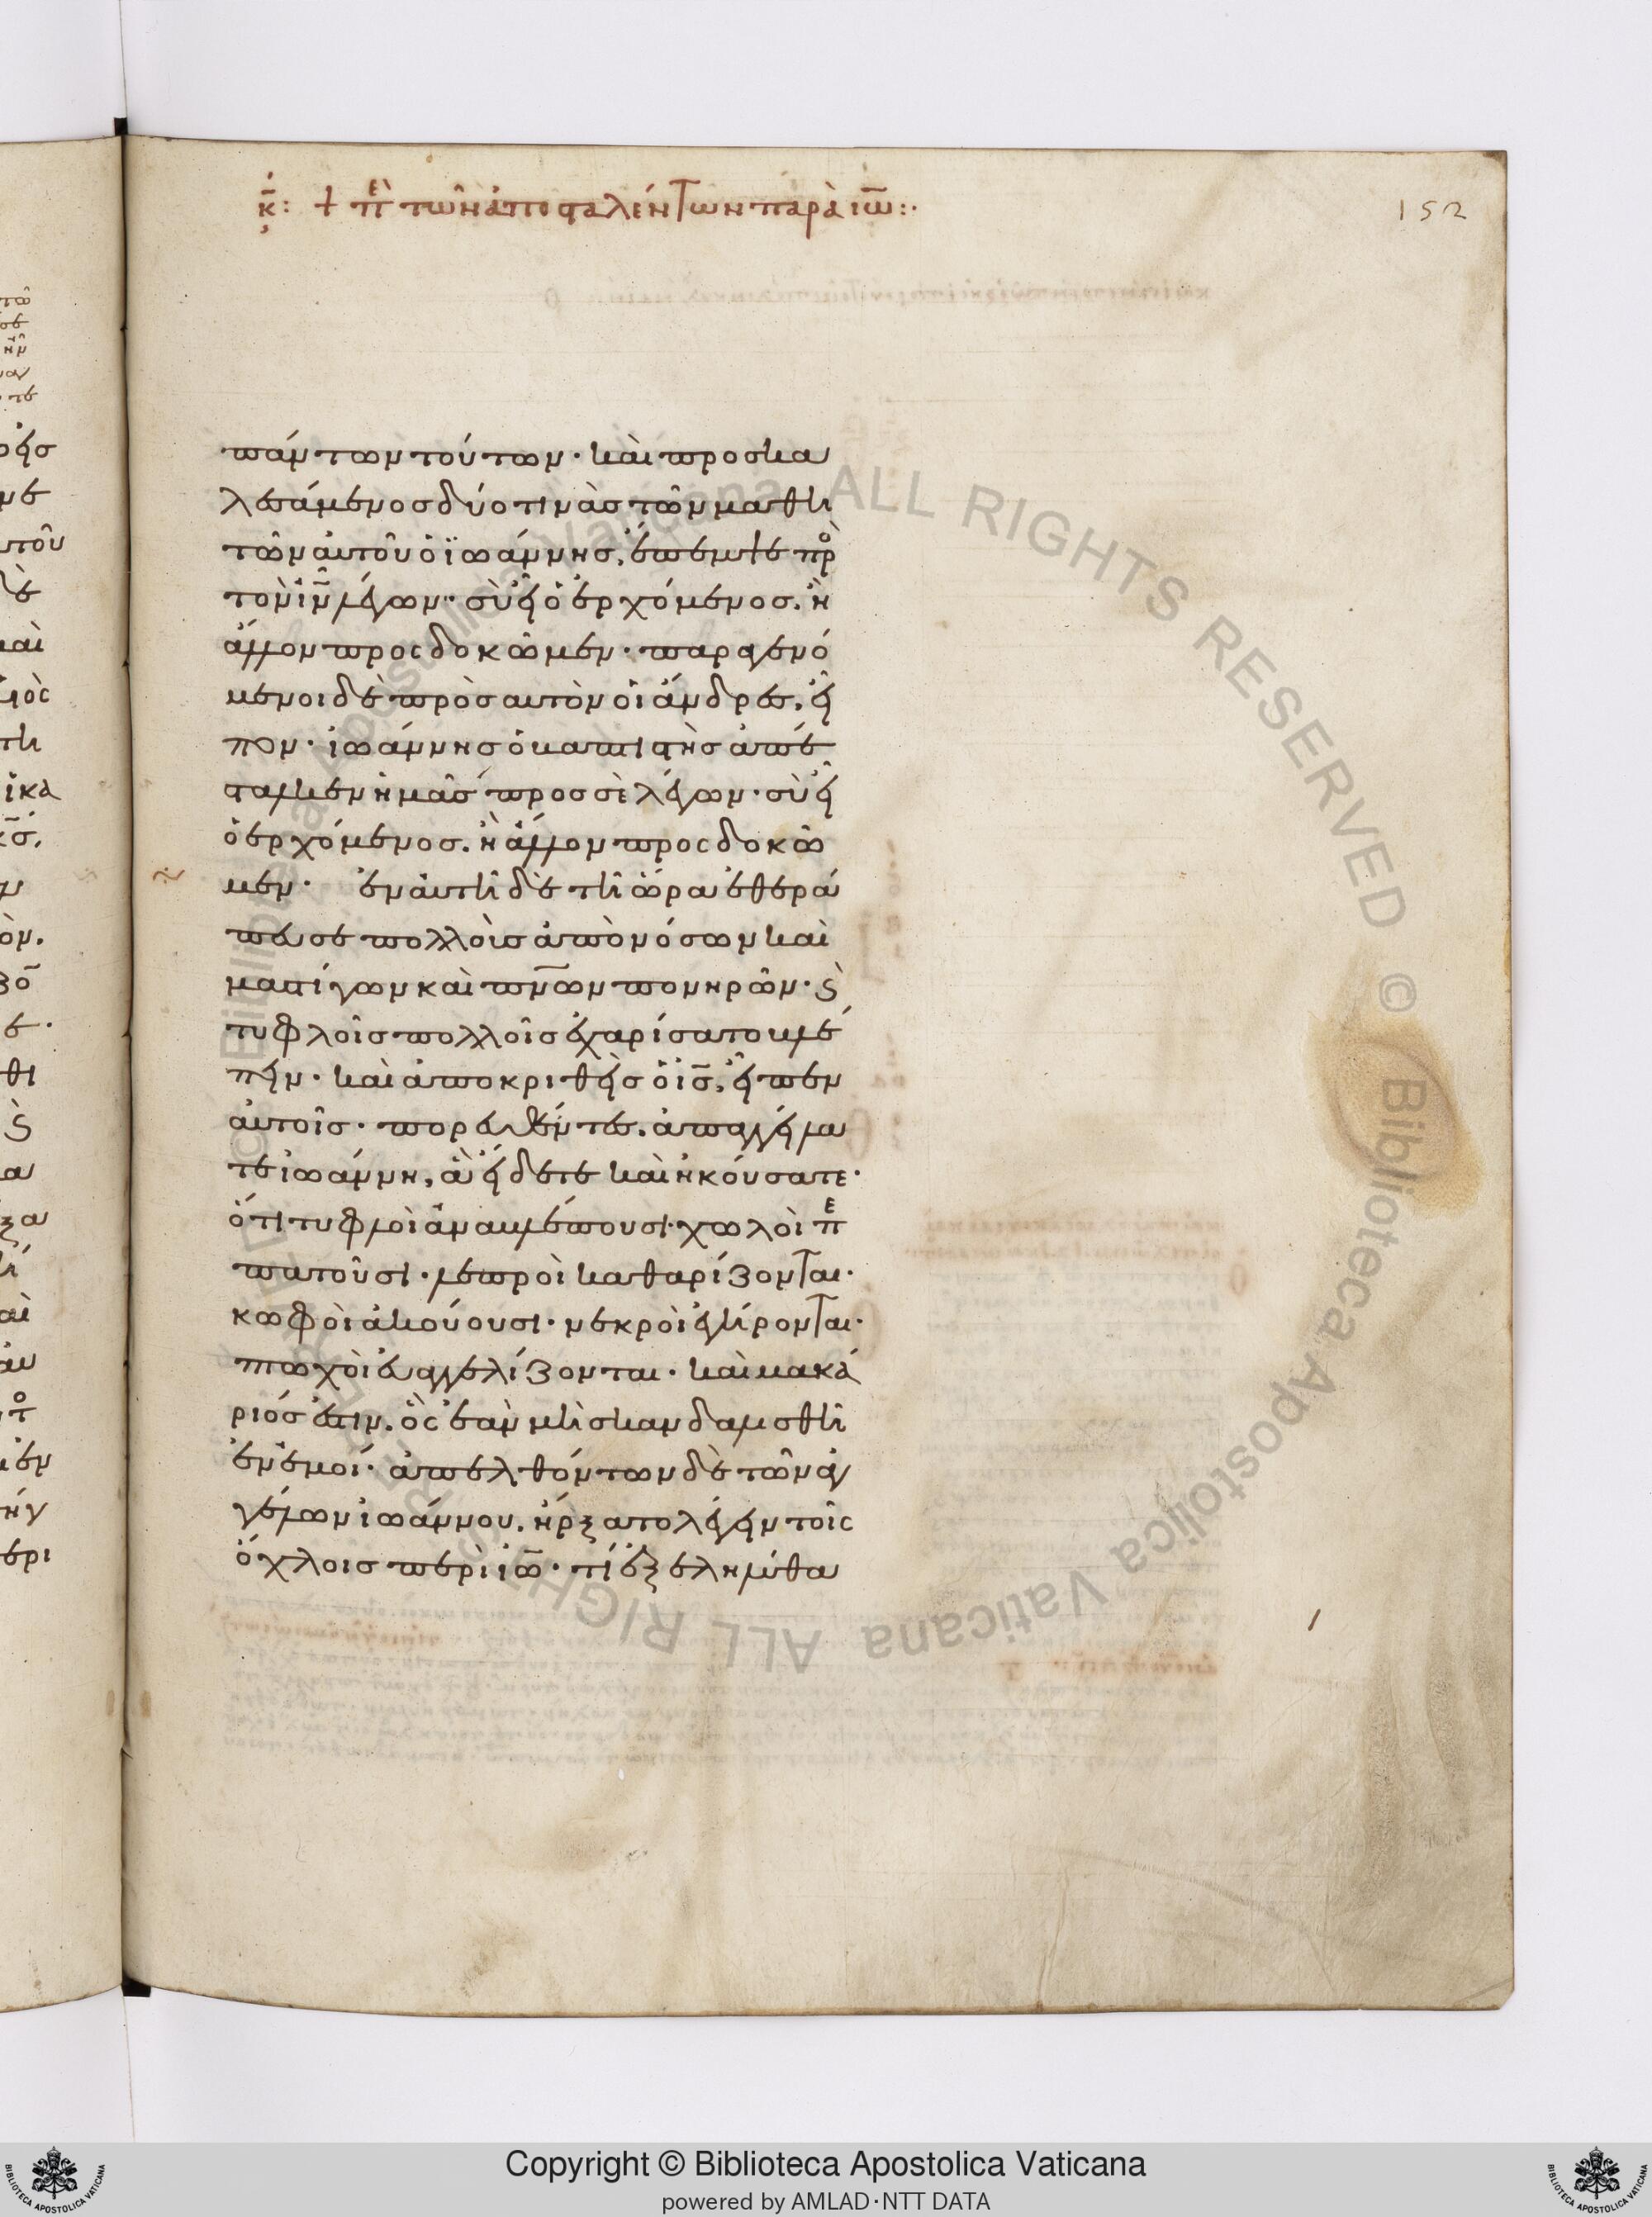 κ: + πε τῶν ἀποσταλέντων παρὰ ιω:·
152
πάντων τούτων· καὶ προσκα
λεσάμενος δύο τινὰς τῶν μαθη
τῶν αὐτοῦ ὁ ϊωάννης, ἔπεμψε πρ
τὸν ιν λέγων·· σὺ εἶ ὁ ἐρχόμενος. ἢ
ἄλλον προσδοκῶμεν· παραγενό
μενοι δὲ πρὸς αυτὸν οἱ ἄνδρες, εἶ
πον· ἰωάννης ὁ βαπτιστὴς ἀπέ
σταλκεν ἡμᾶς προς σὲ λέγων· σὺ εἶ
ὁ ἐρχόμενος. ἢ ἄλλον προσδοκῶ
μεν· ἐν ἀυτῆ δὲ τῆ ὥρα ἐθερά
πευσε πολλοὺσ ἀπὸ νόσων καὶ
μαστίγων καὶ πνων πονηρῶν· ϗ
τυφλοῖς πολλοῖς ἐχαρίσατο βλέ
πειν· καὶ ἀποκριθεὶς ὁ ις, εἶπεν
ἀυτοῖς· πορευθέντες. ἀπαγγείλα
τε ἰωάννη, ἃ εἴδετε καὶ ἠκούσατε·
ὅτι τυφλοὶ ἀναβλέπουσι· χωλοὶ πε
πατοῦσι· λεπροὶ καθαρίζονται·
κωφοὶ ἀκούουσι· νεκροὶ ἐγείρονται·
πτωχοὶ ἐυαγγελίζονται· καὶ μακά
ριός ἐστιν. ὃς ἐὰν μὴ σκανδαλισθῆ
ἐν ἐμοί· ἀπελθόντων δὲ τῶν ἀγ
γέλων ἰωάννου. ἤρξατο λέγειν τοῖς
ὄχλοις περὶ ιω· τί ἐξεληλύθα
Copyright © Biblioteca Apostolica Vaticana
powered by AMLAD·NTT DATA